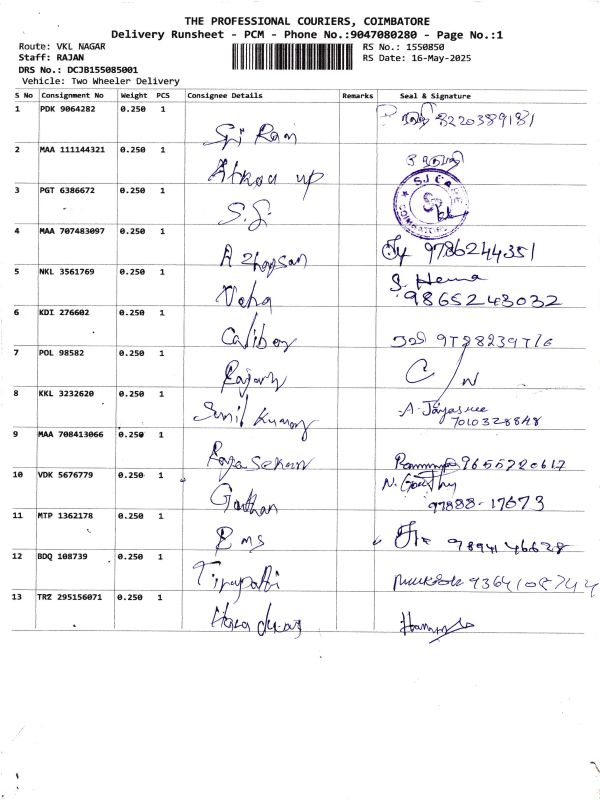 THE PROFESSIONAL COURIERS, COIMBATORE
Delivery Runsheet - PCM - Phone No.:9047080280 - Page No.:1
Route: VKL NAGAR
RS No.: 1550850
Staff: RAJAN
RS Date: 16-May-2025
DRS No.: DCJB155085001
Vehicle: Two Wheeler Delivery
S No Consignment No Weight PCS Consignee Details Remarks Seal & Signature
1 PDK 9064282 0.250 1 Sri Ram 8220389181
2 MAA 111144321 0.250 1
3 PGT 6386672 0.250 1 S.S. SJ CARE COIMBATORE
4 MAA 707483097 0.250 1 9786244351
5 NKL 3561769 0.250 1 S. Hema 9865243032
6 KDI 276602 0.250 1
7 POL 98582 0.250 1
8 KKL 3232620 0.250 1 Sunil Kumar A. Jayasree
7010328848
9 MAA 708413066 0.250 1 Rajasekar 9655720617
10 VDK 5676779 0.250 1 Gowthan N. Gowthy
97888-17673
11 MTP 1362178 0.250 1 9894146628
12 BDQ 108739 0.250 1 Tirupathi
13 TRZ 295156071 0.250 1